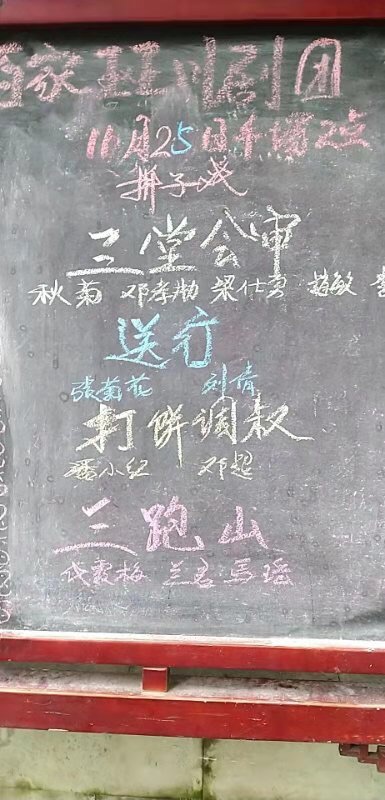 家班川剧团
11月25日午场2点
拼子戏
三堂会审
秋菊 邓孝勋 梁仕勇 赵敏
送行
张菊花 刘倩
打饼调叔
小红 邓超
三跑山
代霞梅 兰君 马瑶